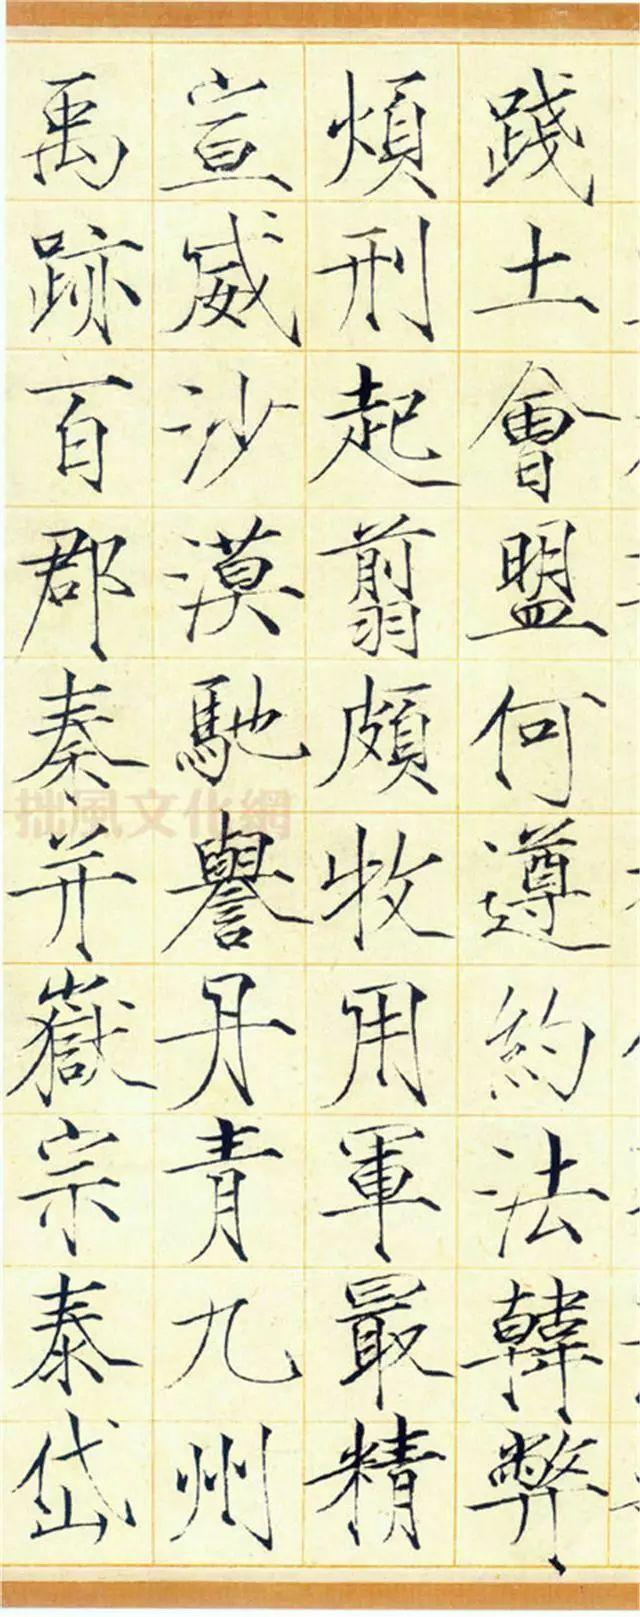 踐土會盟何遵約法韓弊
煩刑起翦頗牧用軍最精
宣威沙漠馳譽丹青九州
禹跡百郡秦并嶽宗泰岱
拙風文化網